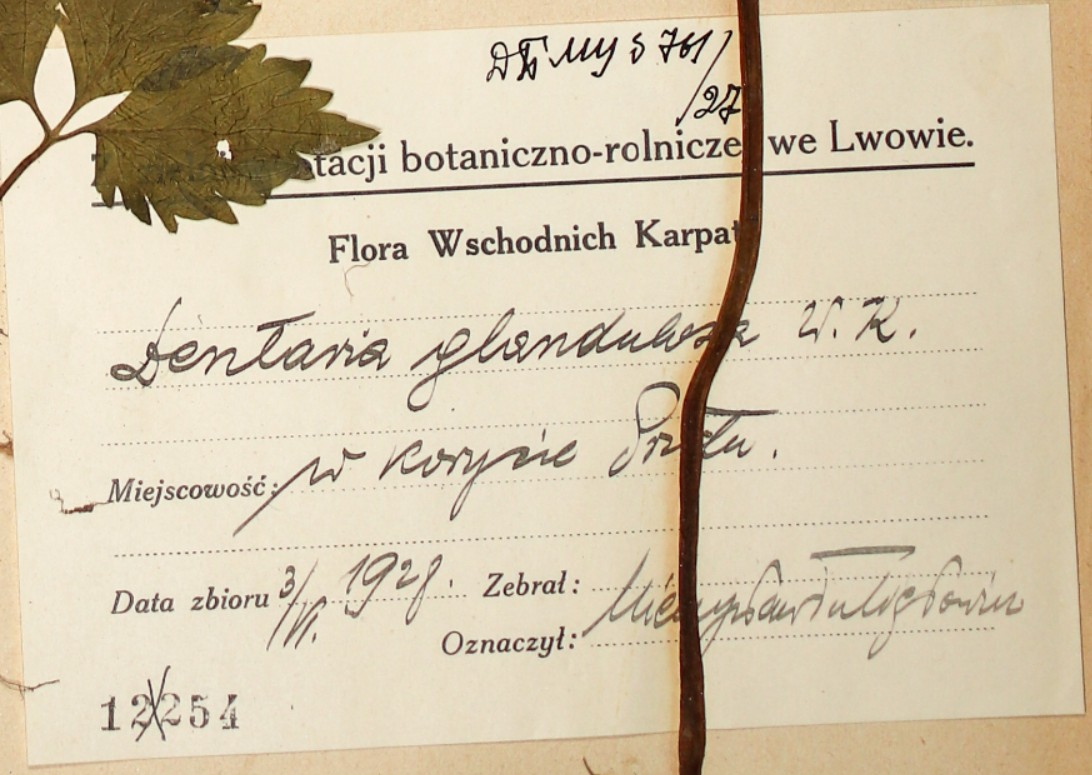 ДБ МУ S 761/
/27
tacji botaniczno-rolnicze we Lwowie.
Flora Wschodnich Karpat
Dentaria glandulosa W. K.
Miejscowość: w korycie Prutu.
Data zbioru 3/VI. 1928. Zebrał:
Oznaczył: Mieczysław
12254